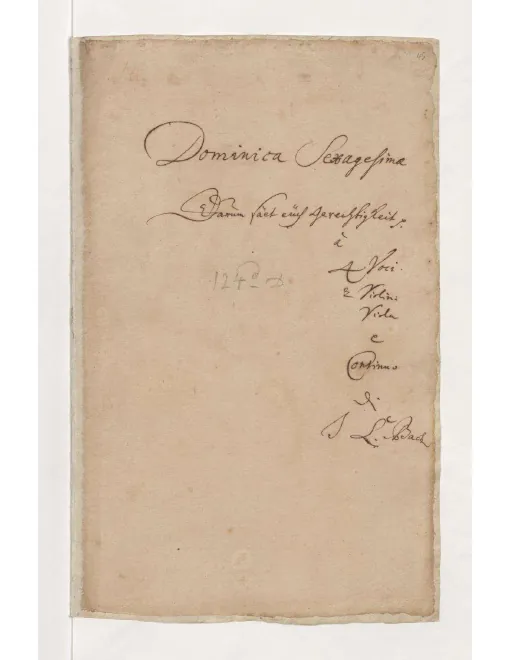 Dominica Sexagesima
Darum säet euch Gerechtigkeit p.
à
4 Voci.
2 Violin:
Viola
e
Continuo
di
J L. Bach